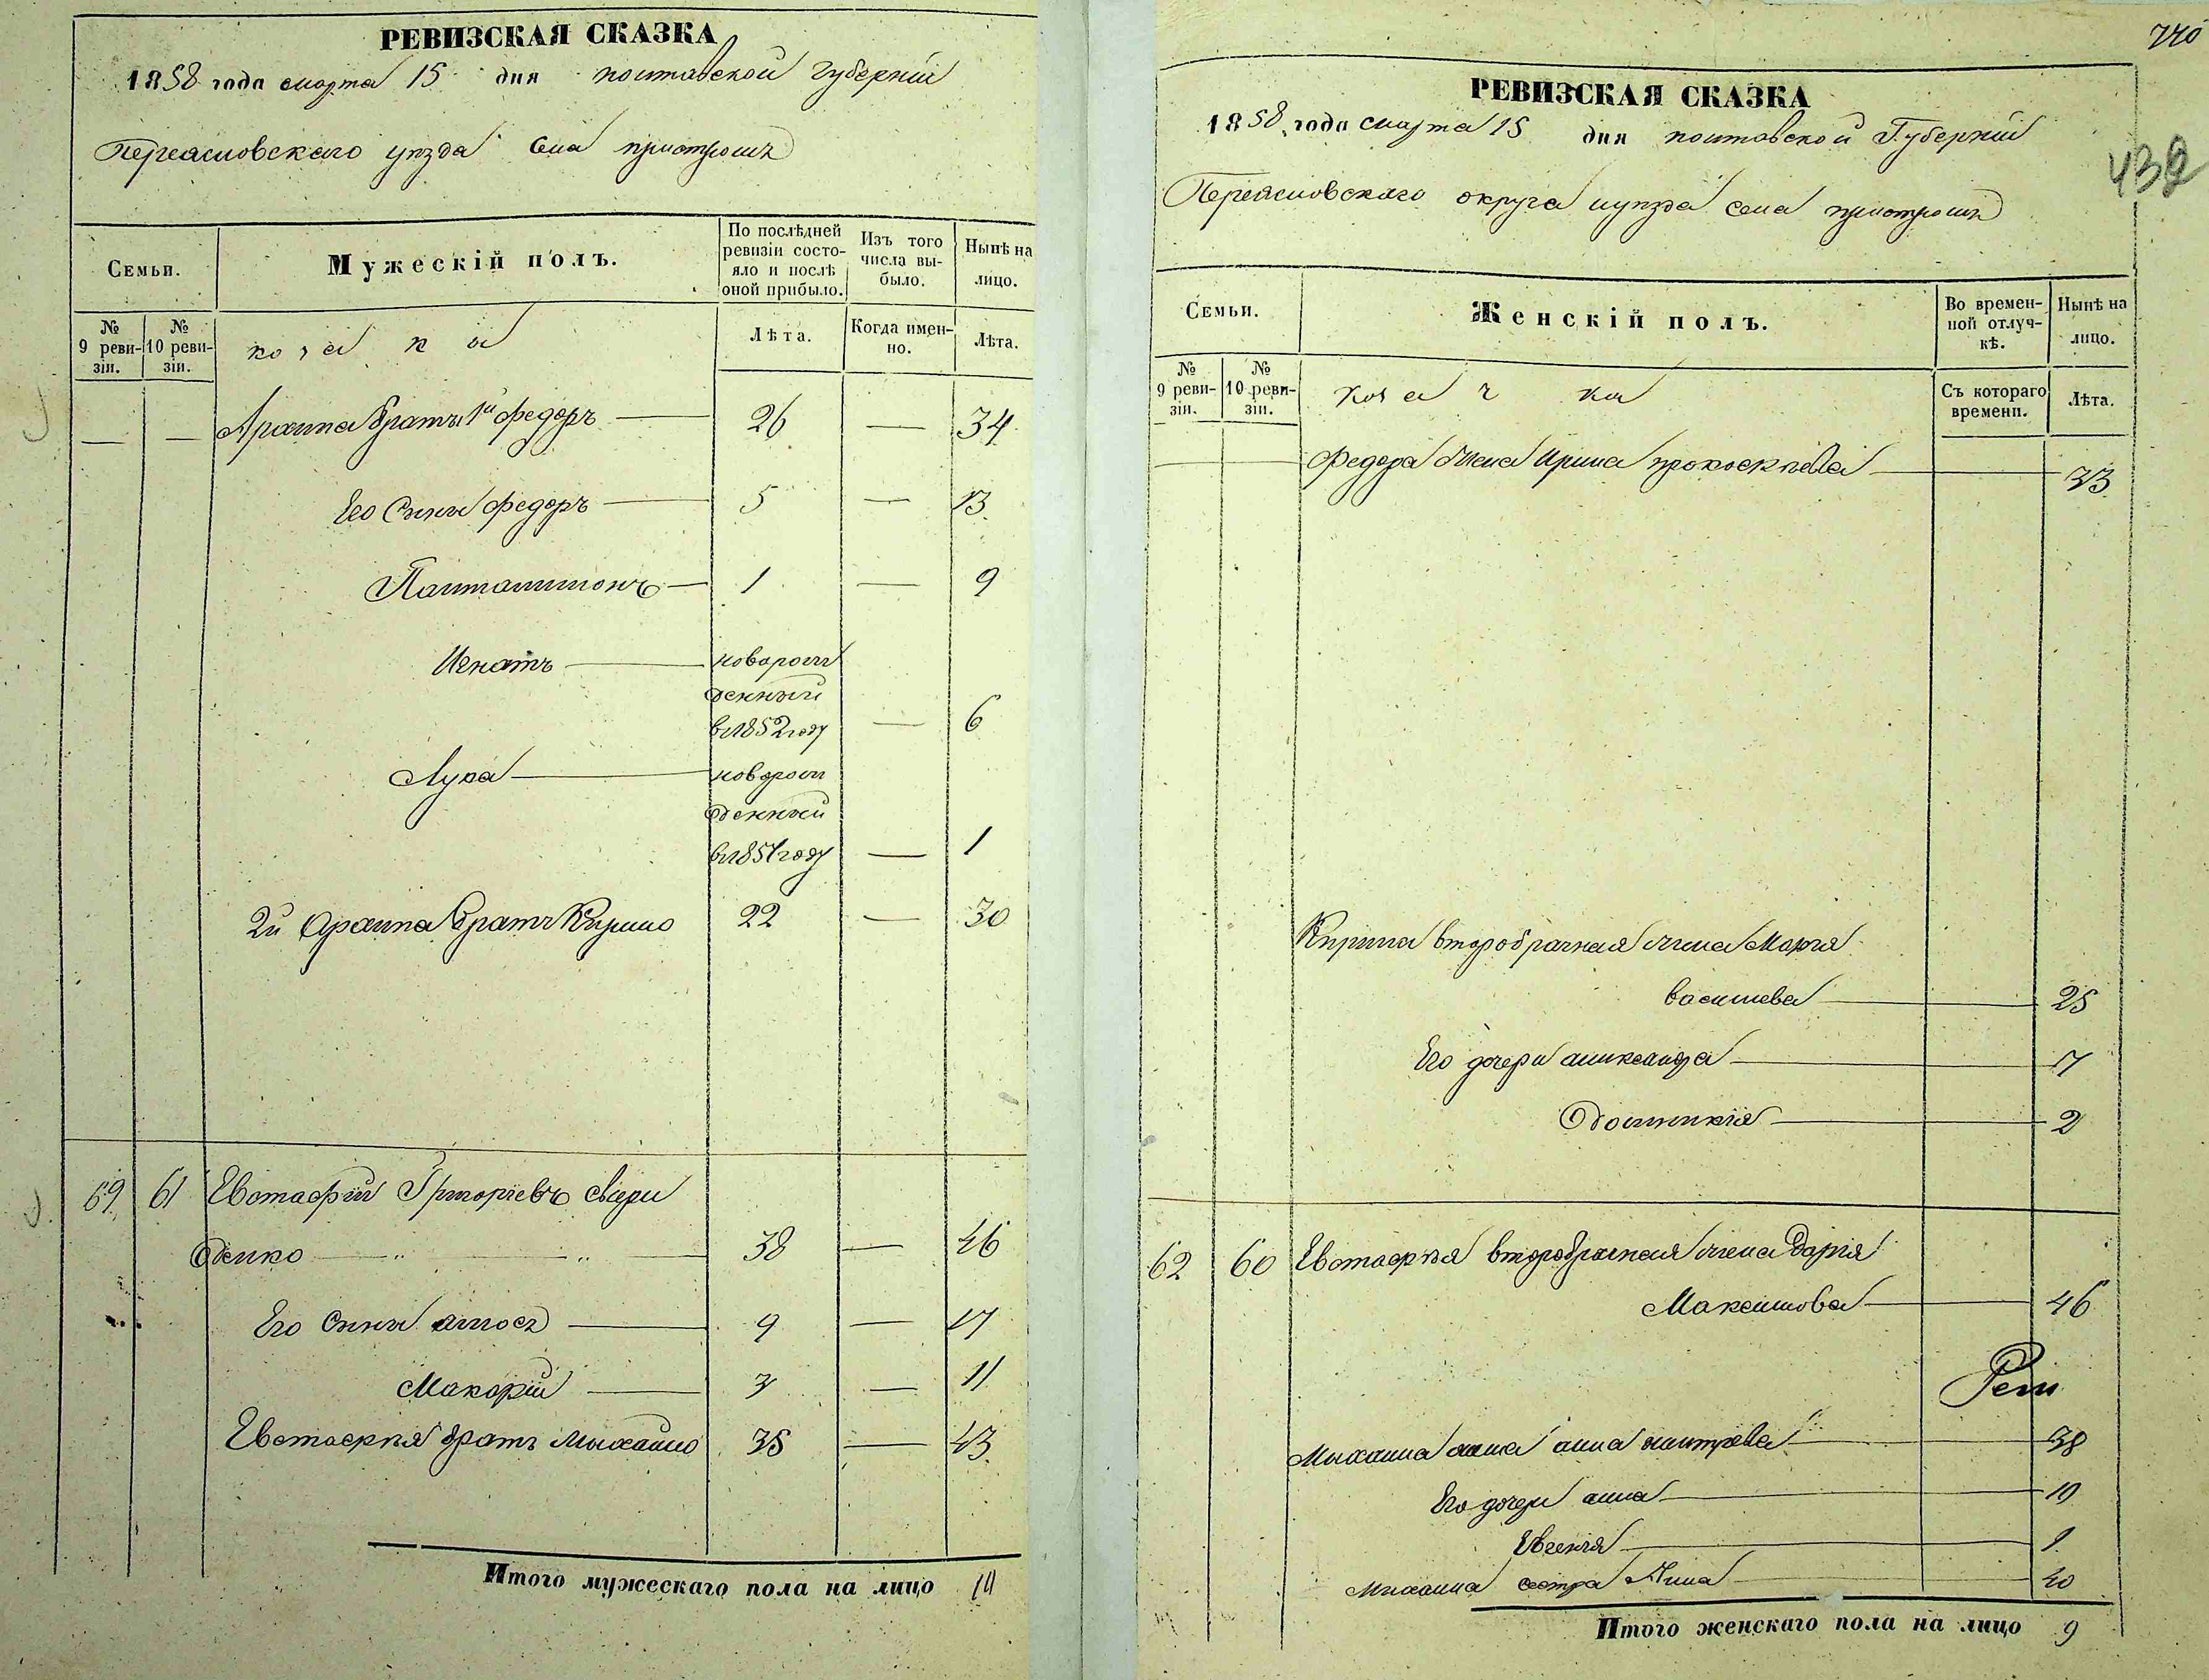 РЕВИЗСКАЯ СКАЗКА
1858 года марта 15 дня полтавской губернии
Переяславского уезда села пристромъ
Семьи.
Мужескій полъ.
По послѣдней ревизіи состо-
яло и послѣ
оной прибыло.
Изъ того
числа вы-
было.
Нынѣ на
лицо.
№ 9 реви-
зіи.
№ 10 реви-
зіи.
козака
Лѣта.
Когда имен-
но.
Лѣта.
— — Архипа братья 1й Федоръ — 26 — 34
Его Сыны Федоръ — 5 — 13
Панталимонъ — 1 — 9
Игнатъ — новорож
денный
в 1852 году — 6
Лука — новорож
денный
в 1857 году — 1
2й Архипа братъ Кирило 22 — 30
69 61 Евстафій Григоріевъ Свири
денко — 38 — 46
Его Сыны амосъ — 9 — 17
Макарій — 3 — 11
Евстафія братъ Михайло 35 — 43
Итого мужескаго пола на лицо 14
240
439
РЕВИЗСКАЯ СКАЗКА
1858 года марта 15 дня полтавской Губерніи
Переяславскаго округа и уезда села пристромъ
Семьи.
Женскій полъ.
Во времен-
ной отлуч-
кѣ.
Нынѣ на
лицо.
№ 9 реви-
зіи.
№ 10 реви-
зіи.
козачка
Съ котораго
времени.
Лѣта.
Федора жена Ирина прокофіева — 33
Кирила второбрачная жена Марія
василева — 25
Его дочери александра — 7
Домникія — 2
62 60 Евстафія второбрачная жена Дарія
Максимова — 46
Михаила жена анна дмитрева — 38
Его дочери анна — 10
Евгенія — 1
Михаила сестра Анна — 40
Итого женскаго пола на лицо 9